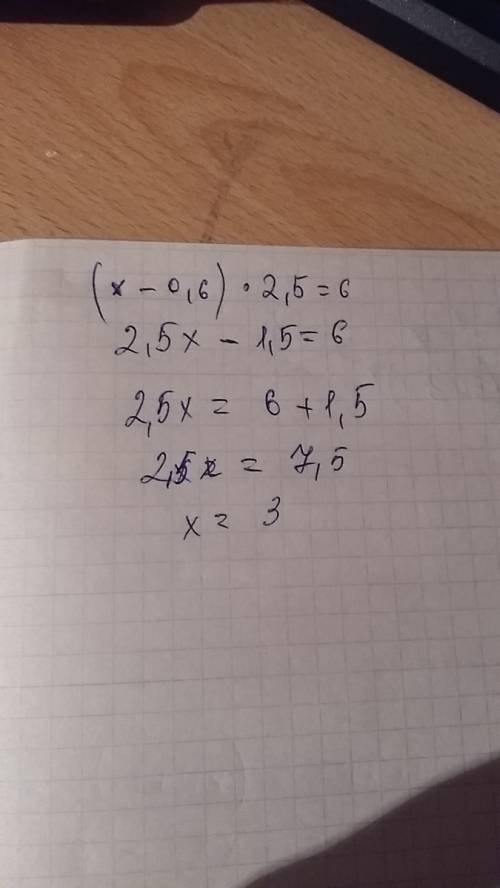 (x - 0,6) · 2,5 = 6
2,5x - 1,5 = 6
2,5x = 6 + 1,5
2,5x = 7,5
x = 3